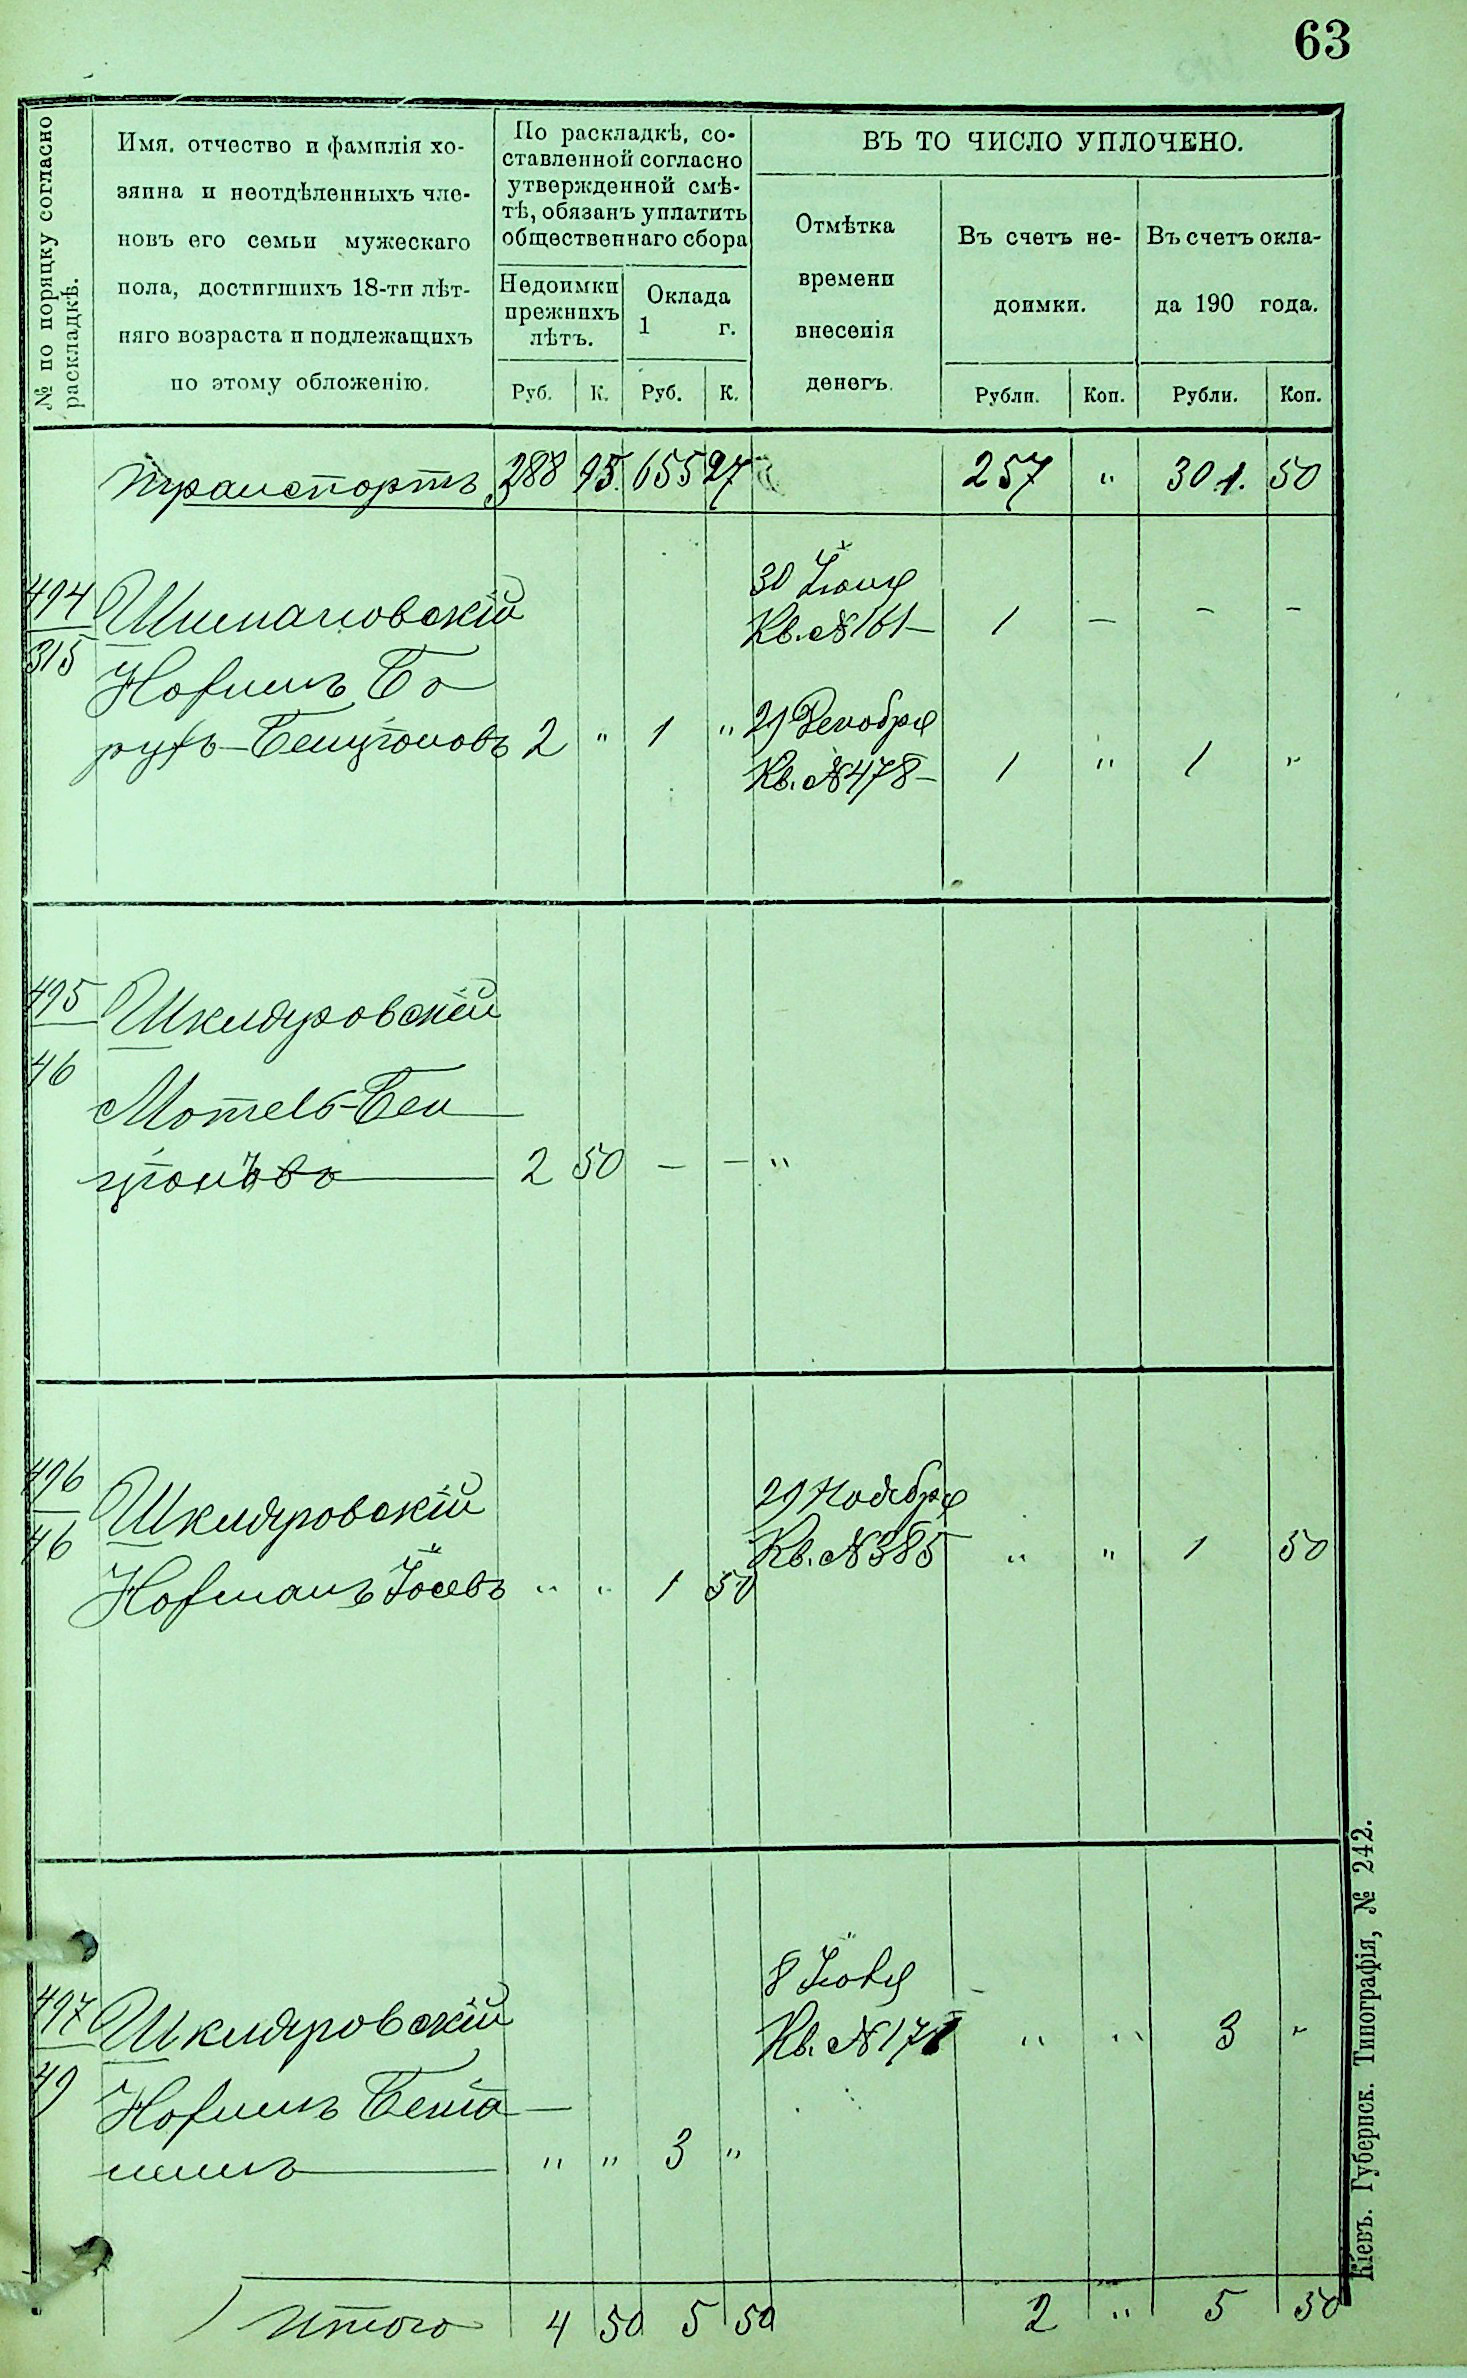 63
№ по поряцку согласно
раскладкѣ.
Имя, отчество и фамилія хо-
зяина и неотдѣленныхъ чле-
новъ его семьи мужескаго
пола, достигшихъ 18-ти лѣт-
няго возраста и подлежащихъ
по этому обложенію.
По раскладкѣ, со-
ставленной согласно
утвержденной смѣ-
тѣ, обязанъ уплатить
общественнаго сбора
Недоимки
прежнихъ
лѣтъ.
Оклада
1 г.
Руб. К. Руб. К.
ВЪ ТО ЧИСЛО УПЛОЧЕНО.
Отмѣтка
времени
внесенія
денегъ.
Въ счетъ не-
доимки.
Въ счетъ окла-
да 190 года.
Рубли. Коп. Рубли. Коп.
Транспортъ 288 95. 655 27 257 " 301. 50
494
315
Шимановскій
30 Іюня
Кв. №161 — 1 — — —
рухъ-Бенціоновъ 2 " 1 "
29 Декабря
Кв. №478 — 1 " 1 "
495
46
Шкляровскій
Мотель-Бен
ціоновъ 2 50 — — "
496
46
Шкляровскій
Нофманъ Іосевъ " " 1 50
29 Ноября
Кв. №385 " " 1 50
497
49
Шкляровскій
8 Іюля
Кв. №171 " " 3 "
" " 3 "
Итого 4 50 5 50 2 " 5 50
Кіевъ. Губернск. Типографія, № 242.